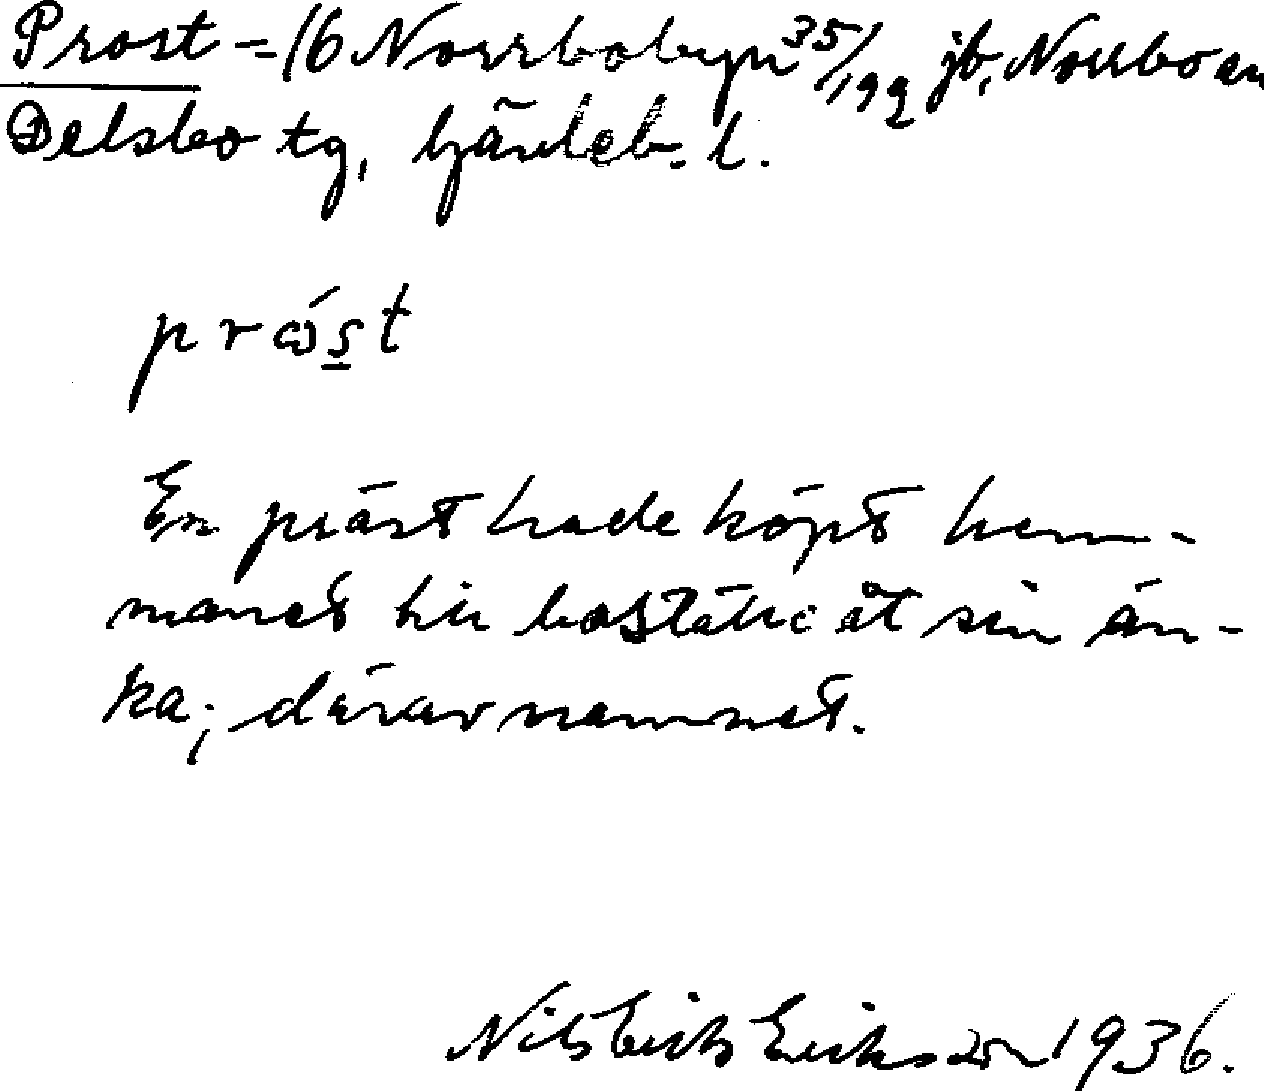 Prost = 16 Norrbobyn 35/199 jb, Norrbo sn
Delsbo tg, Gävleb. l.
pråst
En präst hade köpt hem-
manet till boställe åt sin än-
ka; därav namnet.
Nils Erik Eriksson 1936.